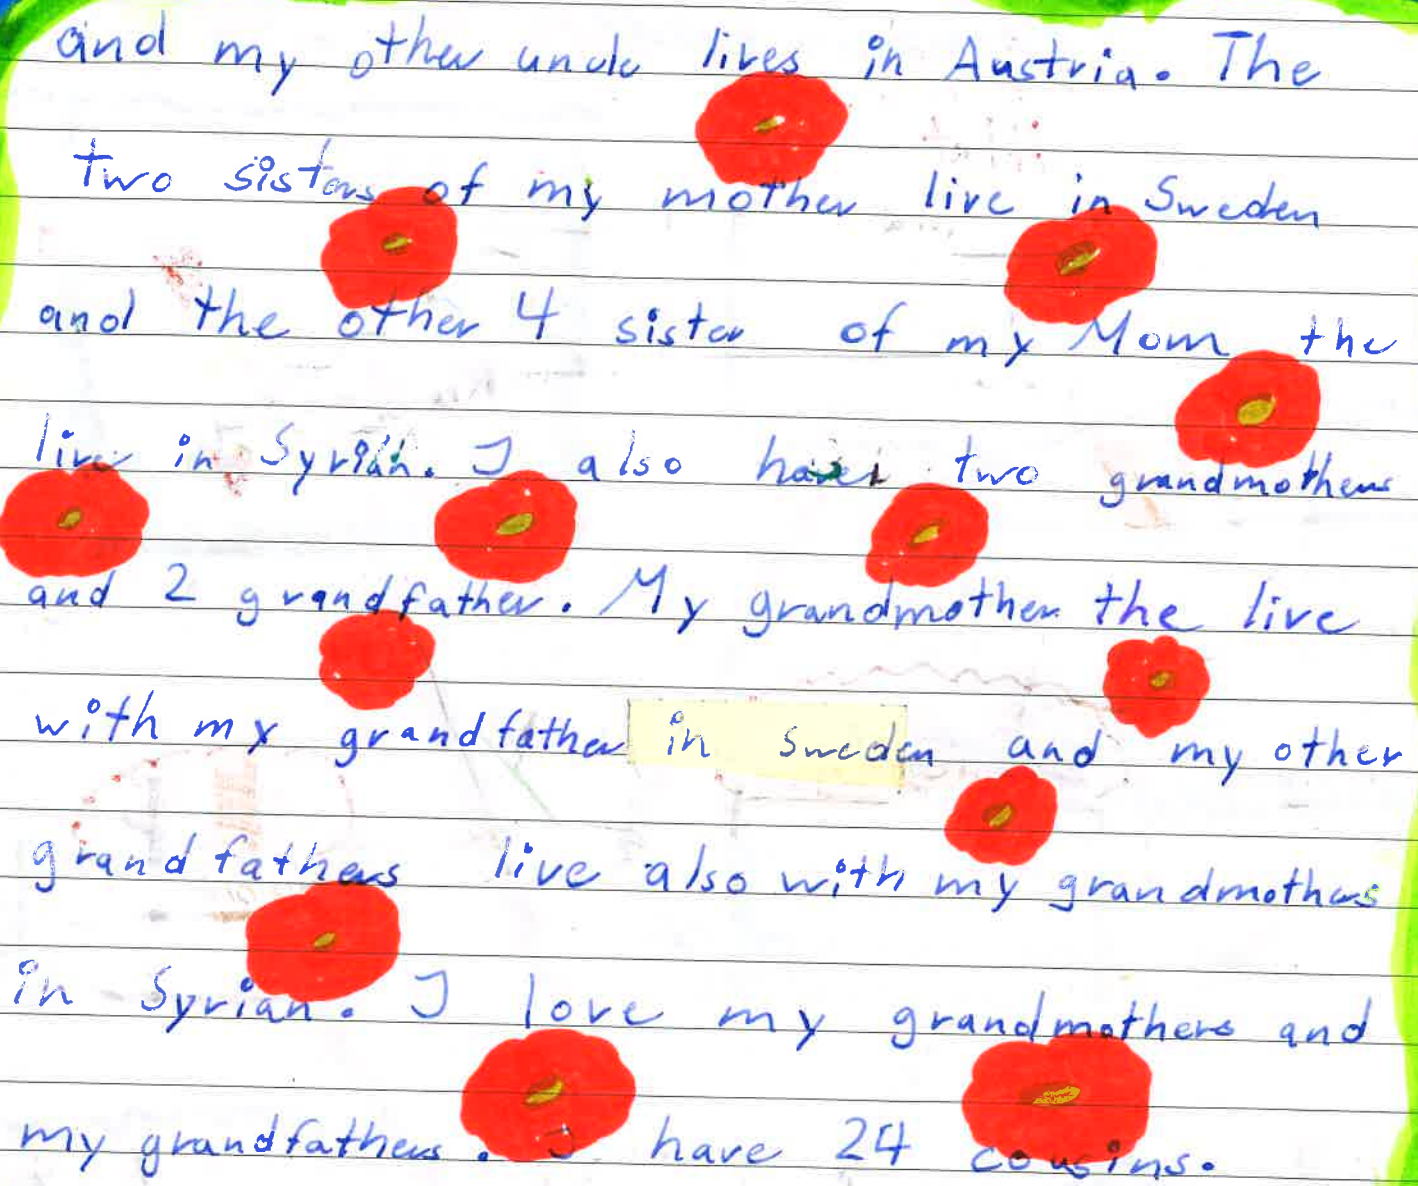 and my other uncle lives in Austria. The
two sisters of my mother live in Sweden
and the other 4 sister of my Mom the
live in Syrian. I also have two grandmothers
and 2 grandfather. My grandmother the live
with my grandfather in Sweden and my other
grandfathers live also with my grandmothers
in Syrian. I love my grandmothers and
my grandfathers. I have 24 cousins.